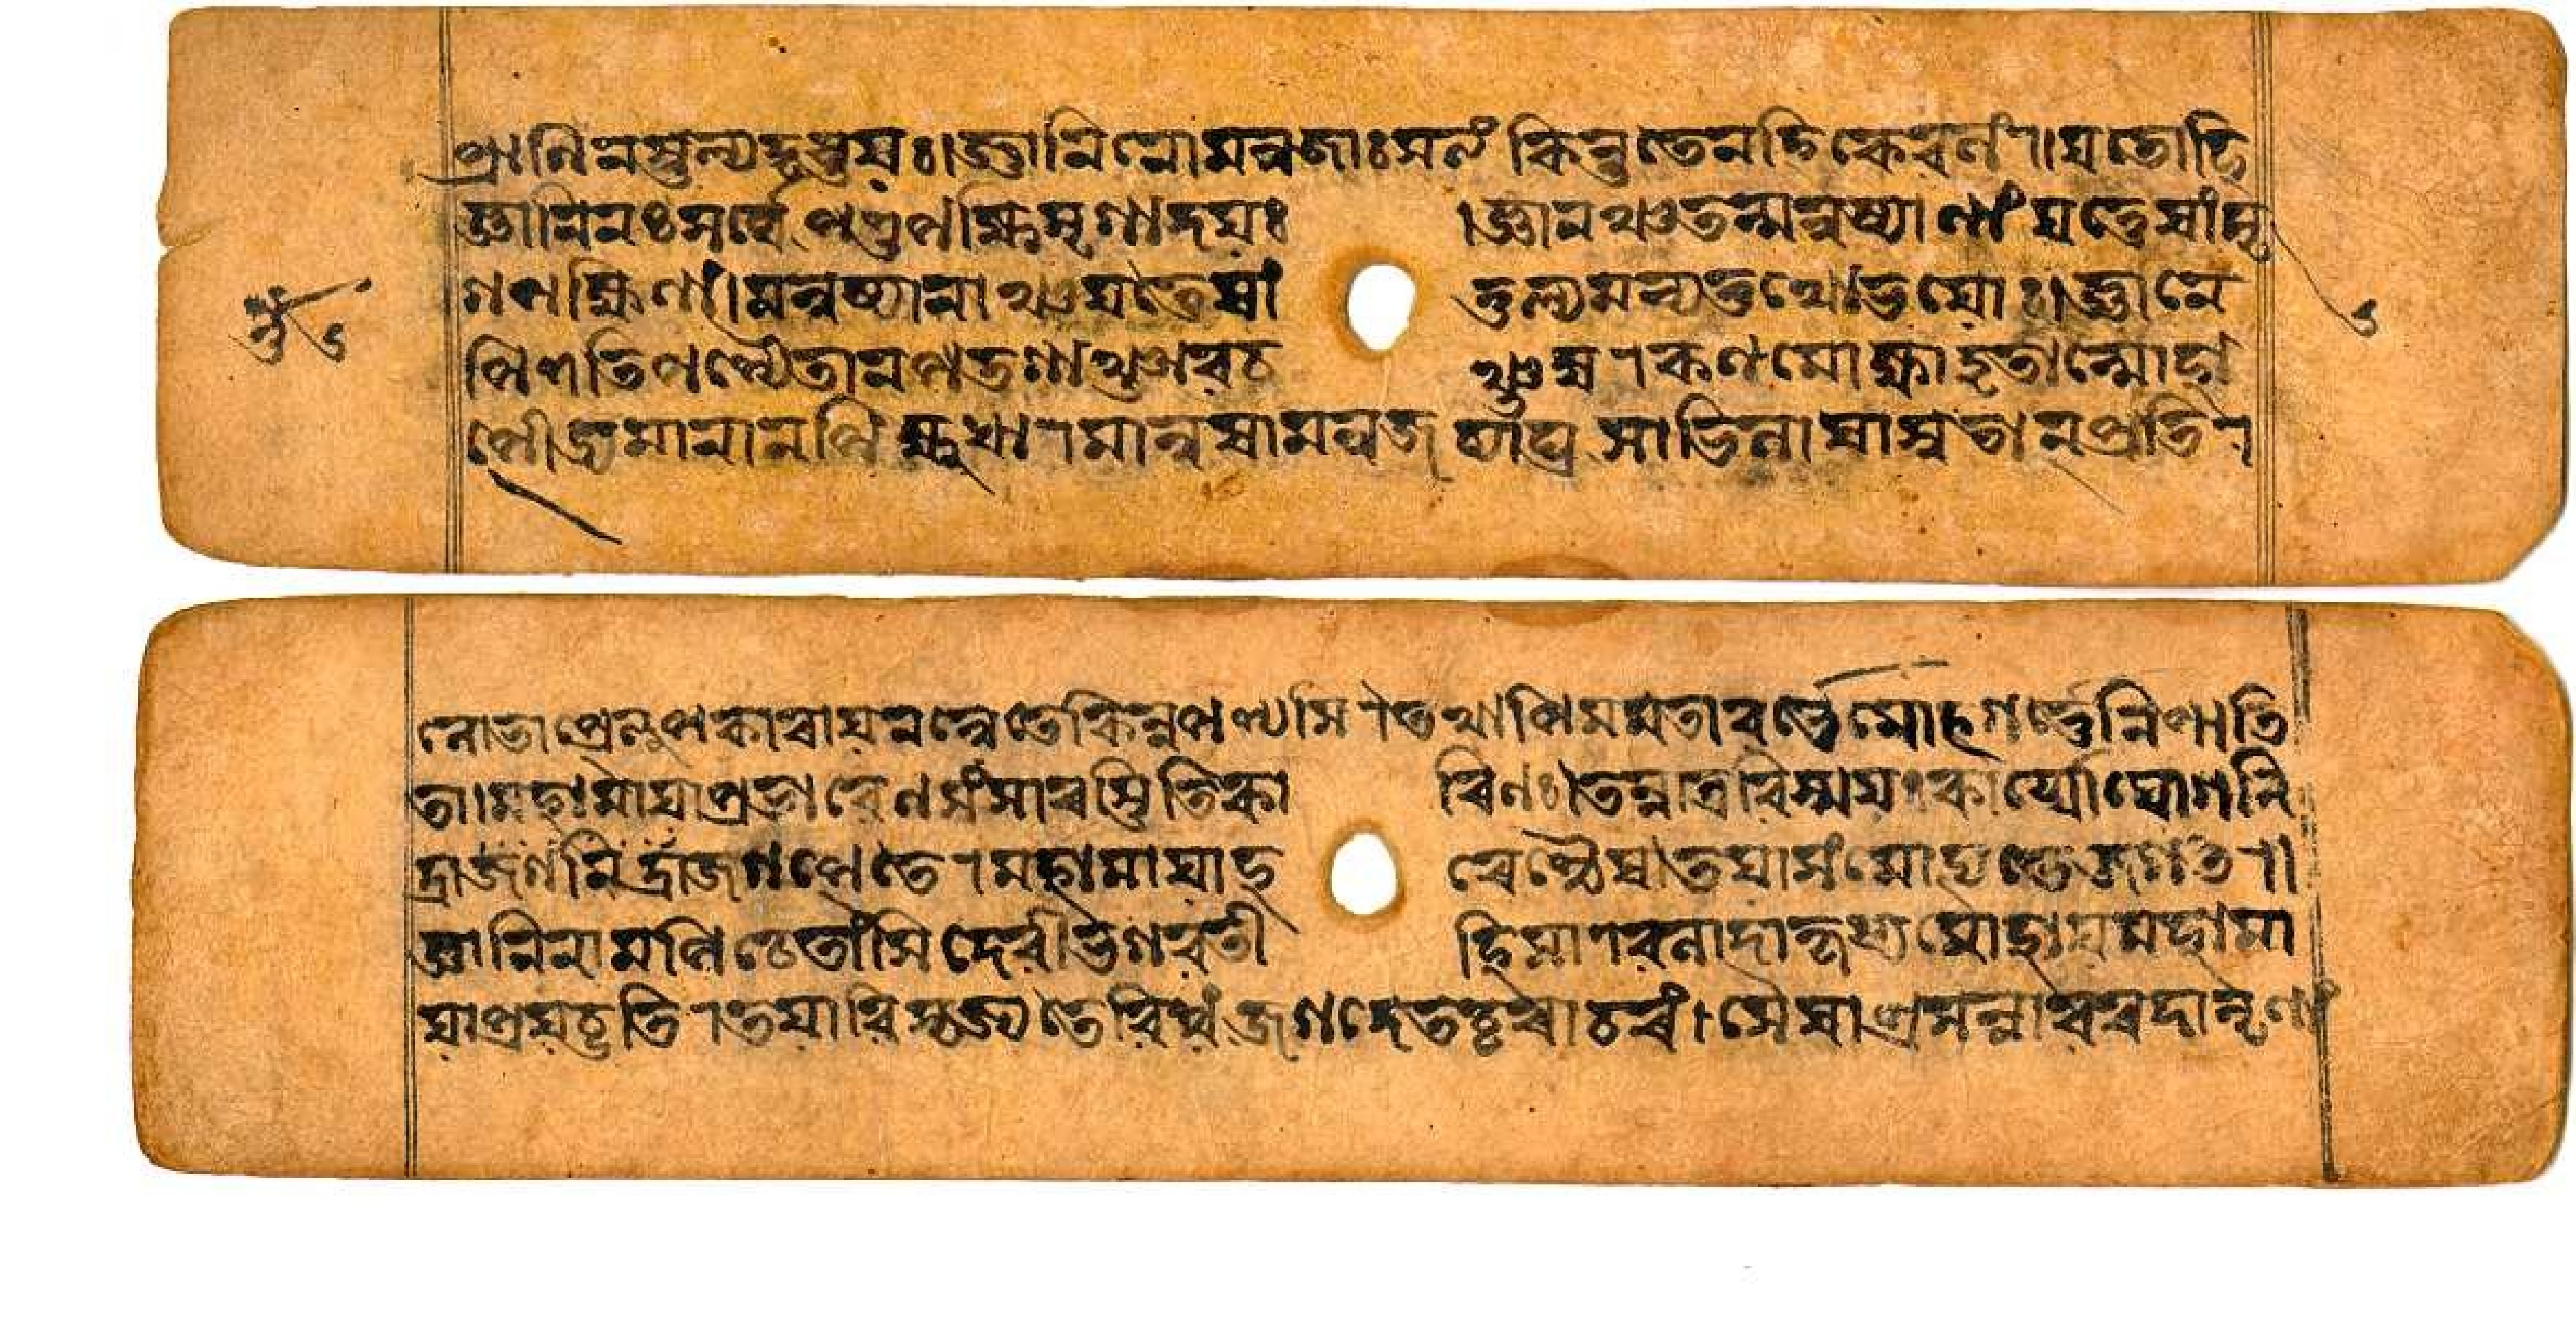 প্রাণিনস্তুল্যদৃষ্টয়ঃ।জ্ঞানিনো মনুজাঃ সত্যং কিন্তু তে ন হি কেবলং॥যতো হি
জ্ঞানিনঃ সর্ব্বে পশুপক্ষিমৃগাদয়ঃ।জ্ঞানঞ্চ তন্মনুষ্যাণাং যত্তেষাং মৃ
গপক্ষিণাং।মনুষ্যানাঞ্চ যত্তেষাং তুল্যমন্যত্তথোভয়োঃ।জ্ঞানে
পি সতি পশ্যৈতান পতগাঞ্ছাবচঞ্চুষু।কণমোক্ষাদৃতান্মোহা
ৎপীড্যমানানপি ক্ষুধা।মানুষা মনুজব্যাঘ্র সাভিলাষা সুতান প্রতি।
লোভাৎ প্রত্যুপকাৰায় নন্বেতে কিন্ন পশ্যসি।তথাপি মমতাবর্ত্তে মোহগর্ত্তে নিপাতি
তা।মহামায়াপ্রভাবেণ সংসাৰস্থিতিকাৰিণঃ।তন্নাত্র বিস্ময়ঃ কার্য্যো যোগনি
দ্রা জগনিদ্রা জগৎপতে।মহামায়া হৰেশ্চৈষা তয়া সংমোহ্যতে জগত॥
জ্ঞানিনামপি চেতাংসি দেবী ভগবতী হি সা।বলাদাকৃষ্য মোহায় মহামা
য়া প্রযচ্ছতি।তয়া বিসৃজ্যতে বিশ্বং জগদেতচ্চৰাচৰং।সৈষা প্রসন্না বৰদা নৃণাং